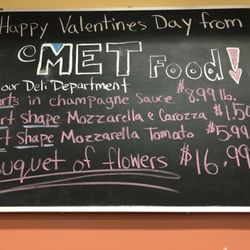 Happy Valentines Day from
MET Food!
our Deli Department
in champagne Sauce $8.99 lb.
shape Mozzarella e Carozza $1.50
shape Mozzarella Tomato $5.99
of flowers $16.99